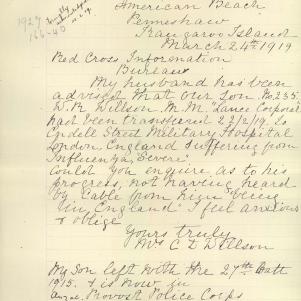 American Beach
Penneshaw
Kangaroo Island
March 24th 1919
Red Cross Information
Bureau
My husband has been
advised that our son No. 235.
W. R. Willson. M. M. Lance Corporal
had been transferred 22/2/19. to
Endell Street Military Hospital
London England suffering from
Influenza, Severe.
Could you enquire as to his
progress, not having heard
by Cable from him being
in England. I feel anxious
& oblige
Yours truly
Mrs C I Willson
My Son left with the 27th Batt
1915. & is now in
Anzac Provost Police Corps